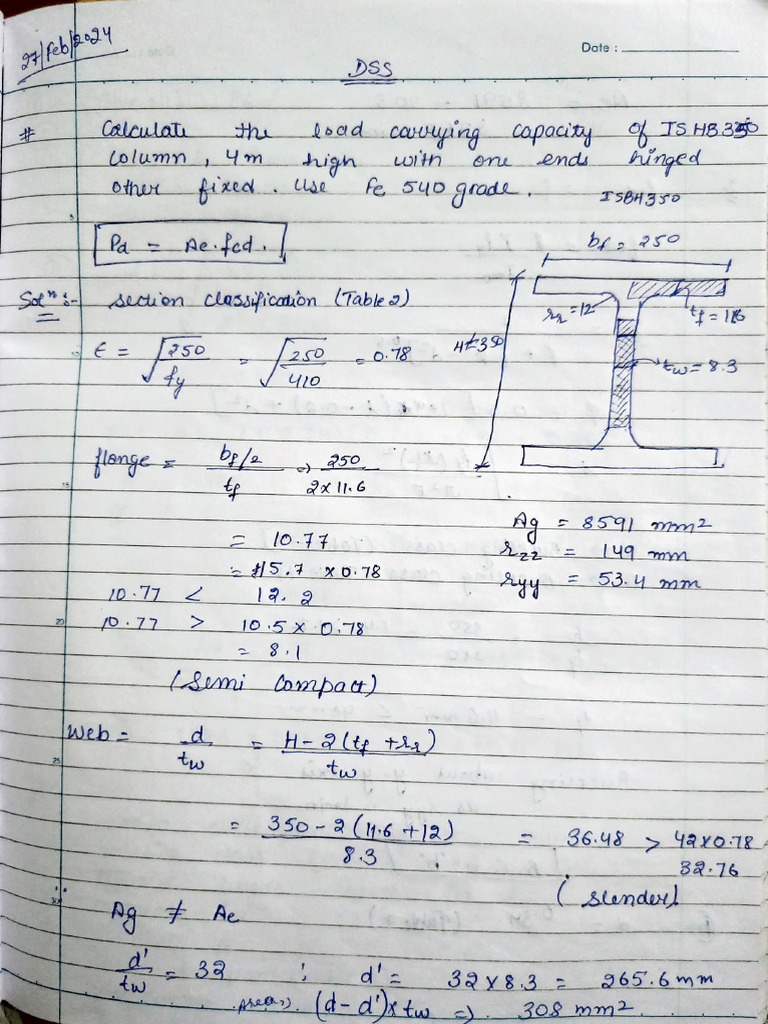 27/Feb/2024
Date :
DSS
# Calculate the load carrying capacity of ISHB 350
column, 4m high with one ends hinged
other fixed. Use Fe 540 grade.
ISBH350
Pd = Ae.fcd.
bf = 250
Solⁿ :- section classification (Table 2)
rr = 12
tf = 11.6
ϵ = √(250/fy) = √(250/410) = 0.78
H = 350
tw = 8.3
flange = (bf/2)/tf => 250/(2×11.6)
= 10.77
= 15.7 × 0.78
10.77 < 12.2
10.77 > 10.5 × 0.78
= 8.1
(Semi Compact)
Ag = 8591 mm²
rzz = 149 mm
ryy = 53.4 mm
Web = d/tw = (H - 2(tf + rr))/tw
= (350 - 2(11.6 + 12))/8.3 = 36.48 > 42×0.78
32.76
(slender)
Ag ≠ Ae
d'/tw = 32 ; d' = 32 × 8.3 = 265.6 mm
Area => (d-d')×tw => 308 mm²